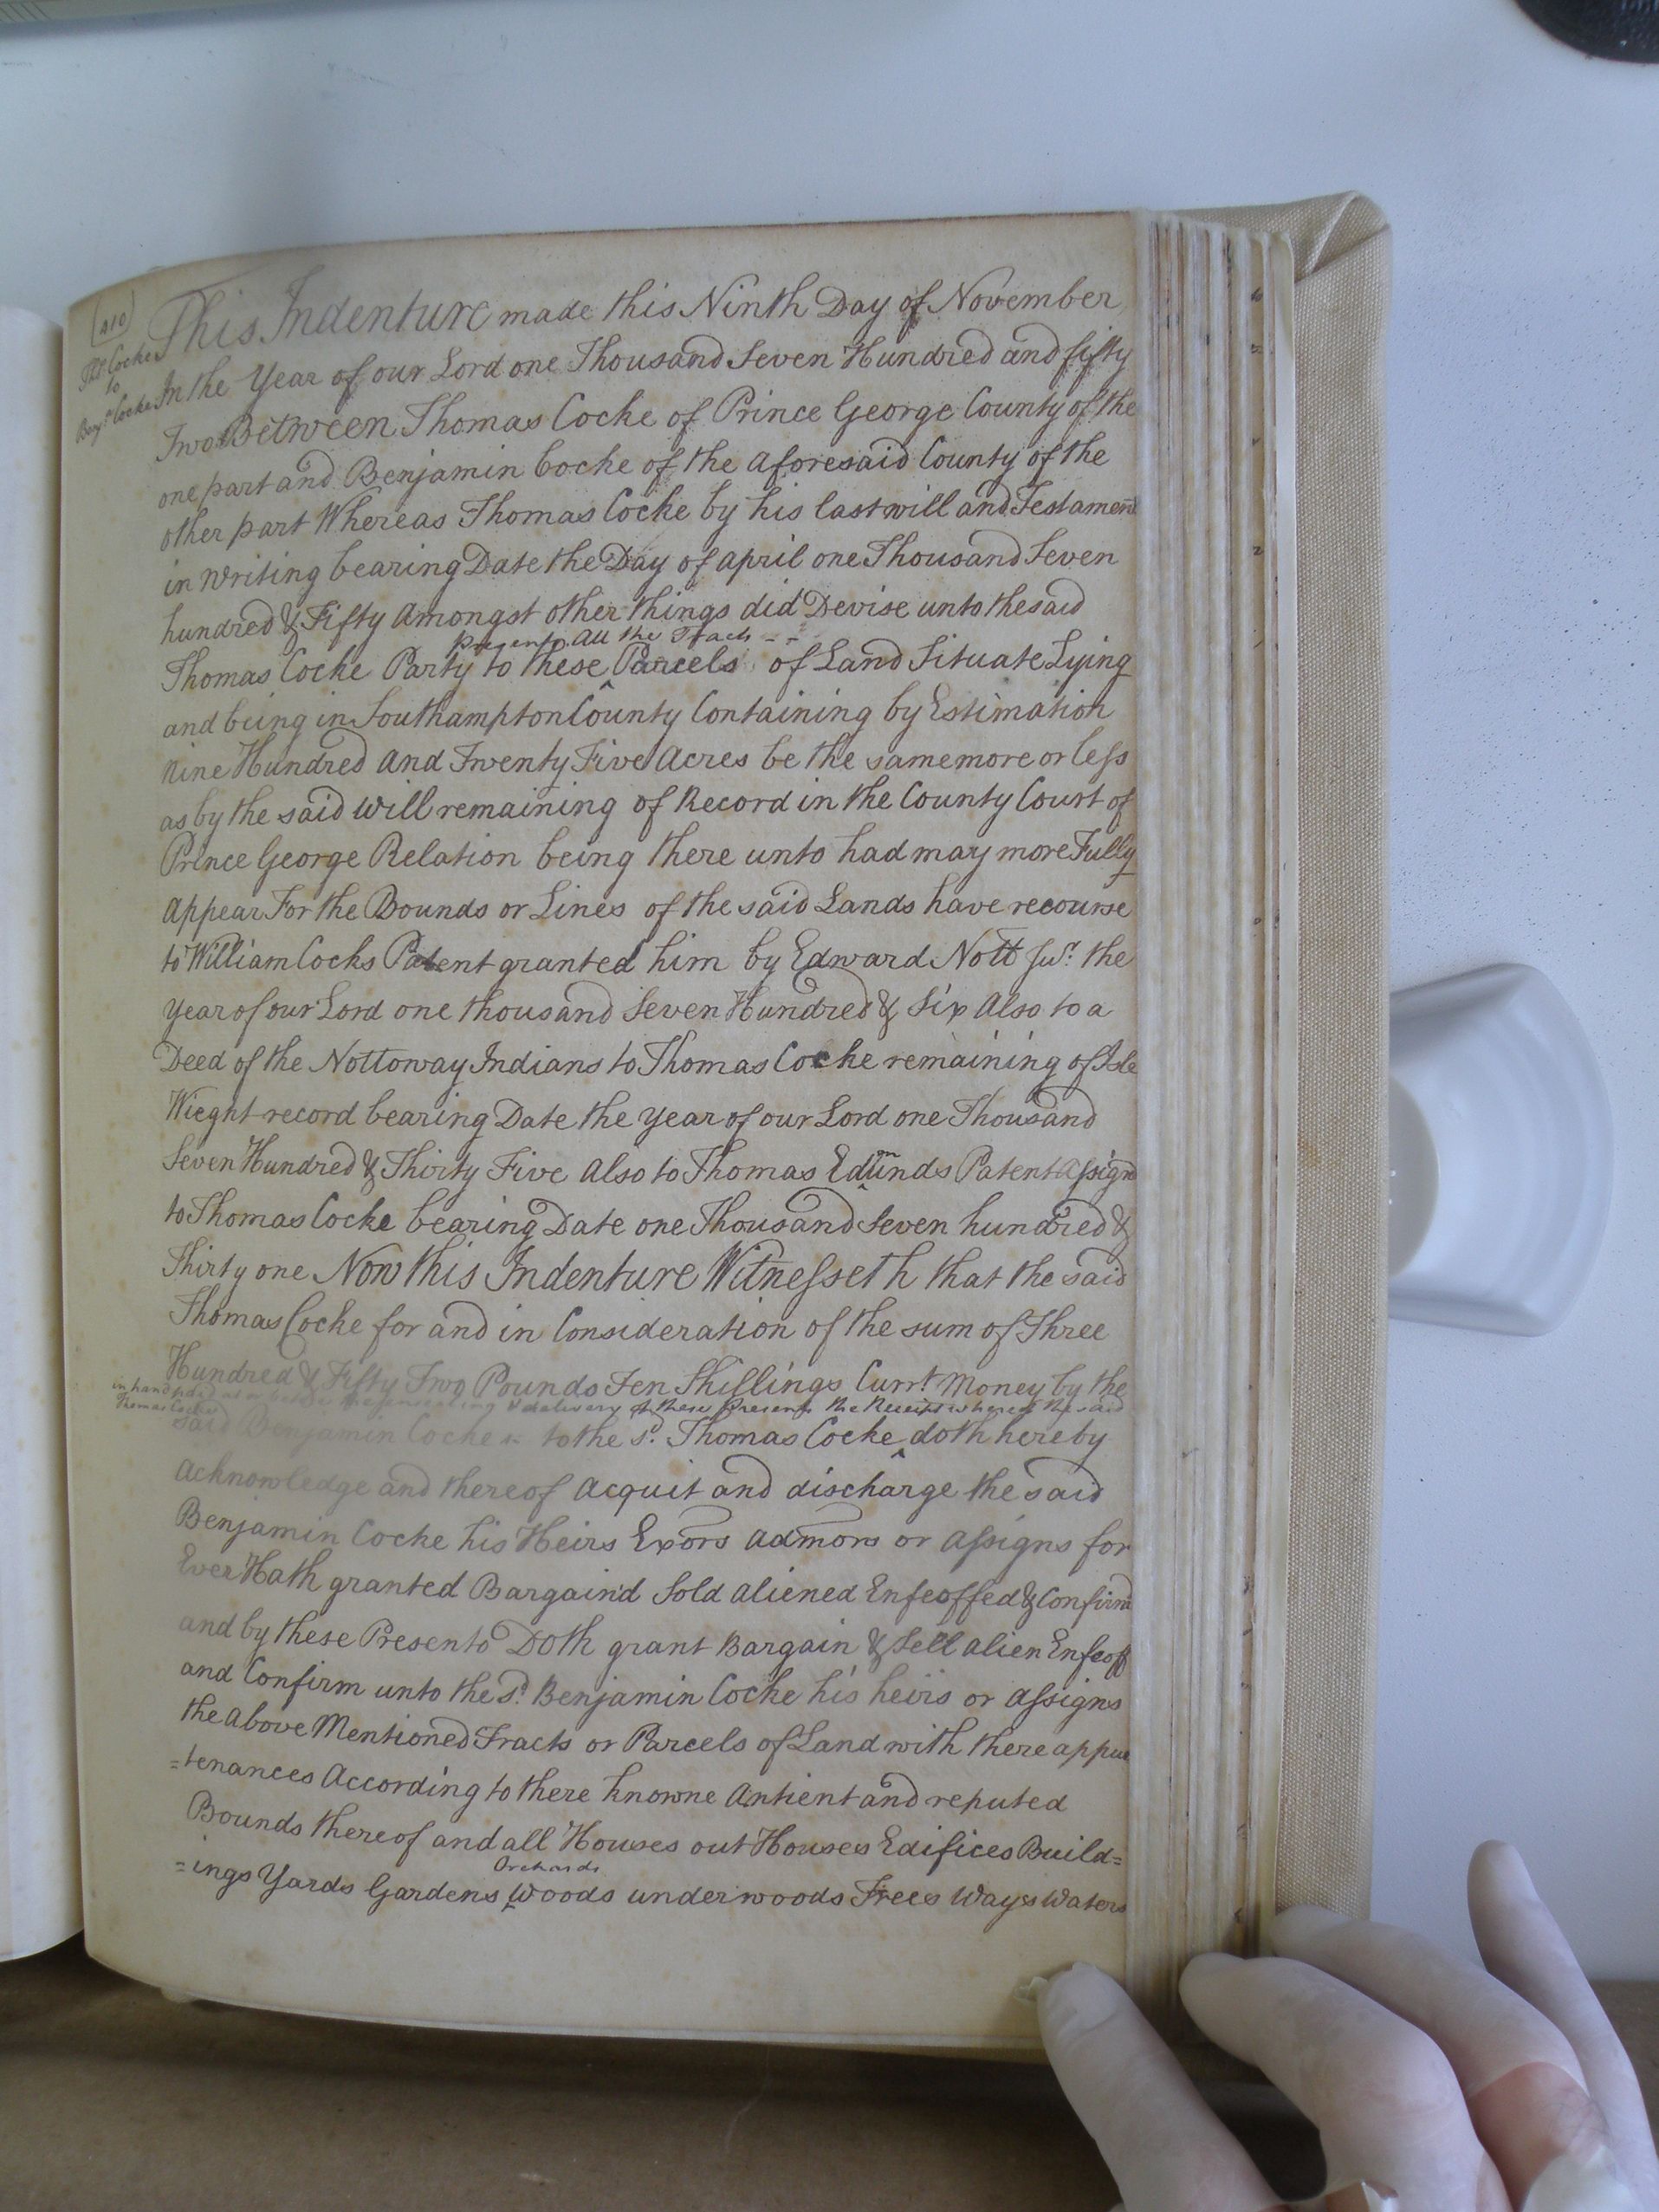 (410)
Tho.s Cocke
to
Benj.n Cocke
This Indenture made this Ninth Day of November
In the Year of our Lord one Thousand Seven Hundred and fifty
Two Between Thomas Cocke of Prince George County of the
one part and Benjamin Cocke of the aforesaid County of the
other part Whereas Thomas Cocke by his last will and Testament
in Writing bearing Date the Day of april one Thousand Seven
hundred & Fifty Amongst other things did Devise unto the said
Presents All the Tract
Thomas Cocke Party to these ^ Parcels of Land Situate Lying
and being in Southampton County Containing by Estimation
Nine Hundred and Twenty Five Acres be the same more or less
as by the said Will remaining of Record in the County Court of
Prince George Relation being there unto had may more Fully
Appear For the Bounds or Lines of the said Lands have recourse
to William Cocks Patent granted him by Edward Nott the
year of our Lord one thousand Seven Hundred & Six Also to a
Deed of the Nottoway Indians to Thomas Cocke remaining of Isle
Wieght record bearing Date the year of our Lord one Thousand
Seven Hundred & Thirty Five Also to Thomas Edmunds Patent Assign
to Thomas Cocke bearing Date one Thousand Seven hundred &
Thirty one Now this Indenture Witnesseth that the said
Thomas Cocke for and in Consideration of the sum of Three
Hundred & Fifty Two Pounds Ten Shillings Curr.t Money by the
in hand paid at or before the ensealing & delivery of these Presents the Receipt whereof the said
Thomas Cocke
said Benjamin Cocke to the s.d Thomas Cocke ^ doth hereby
Acknowledge and thereof Acquit and discharge the said
Benjamin Cocke his Heirs Exors admors or assigns for
Ever Hath granted Bargain'd Sold aliened Enfeoffed & Confirm'd
and by these Presents Doth grant Bargain & Sell alien Enfeoff
and Confirm unto the s.d Benjamin Cocke his heirs or assigns
the above Mentioned Tracts or Parcels of Land with there appur
=tenances According to there knowne Antient and reputed
Bounds thereof and all Houses out Houses Edifices Build=
Orchards
=ings Yards Gardens ^ Woods underwoods Trees Ways Waters